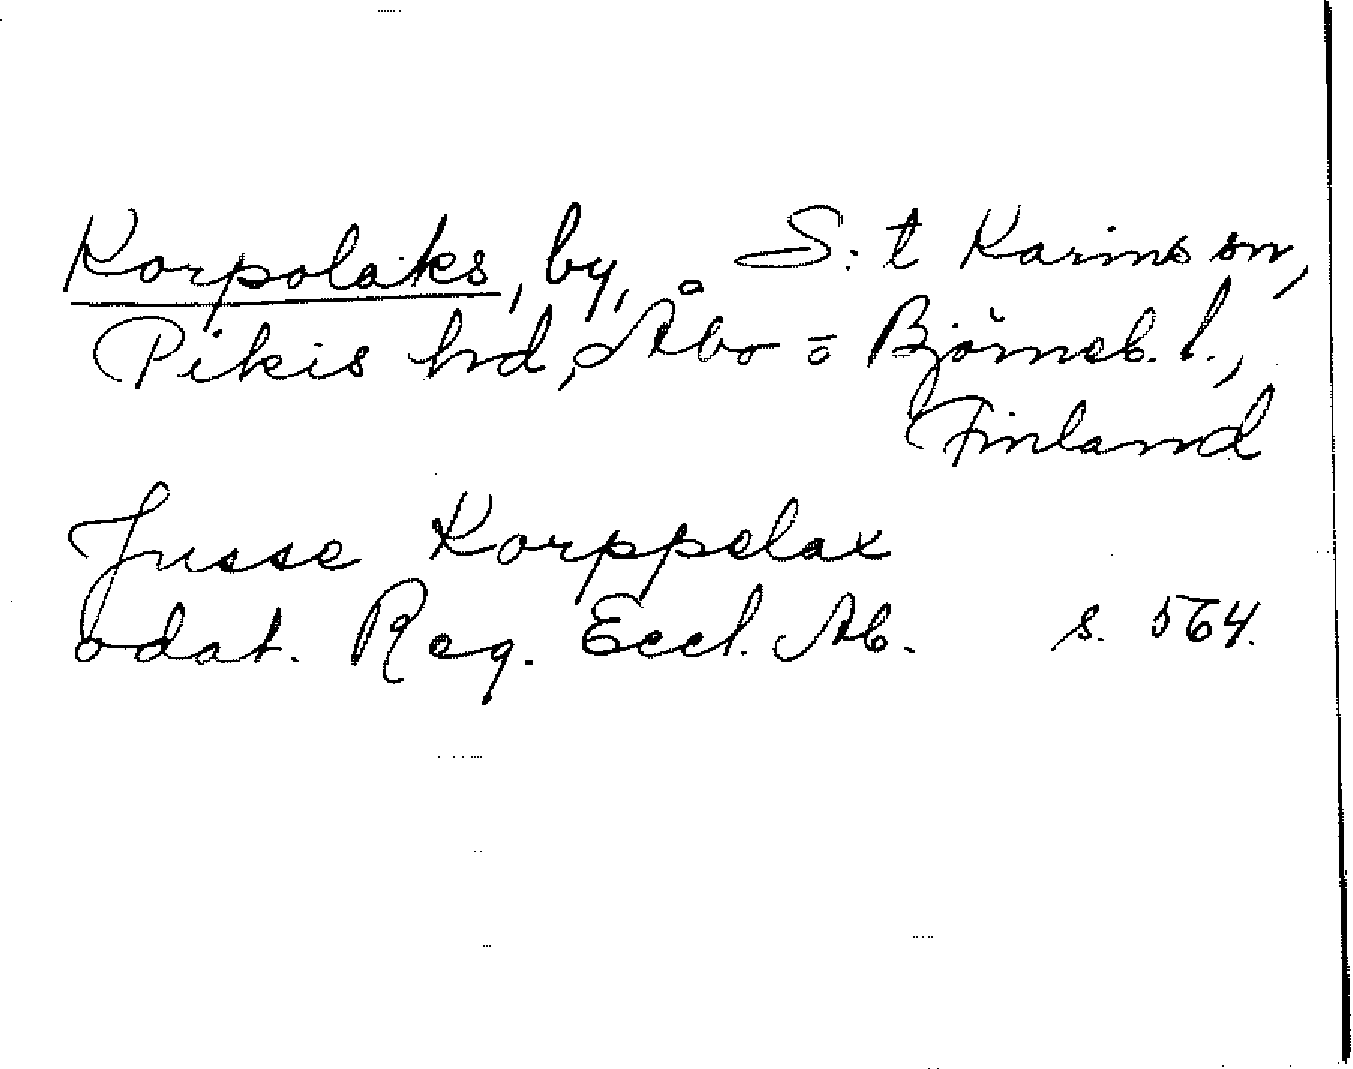 Korpolaks, by, S:t Karins sn,
Pikis hd, Åbo o Björneb. l.,
Finland
Jusse Korppelax
odat. Reg. Eccl. Ab. s. 564.